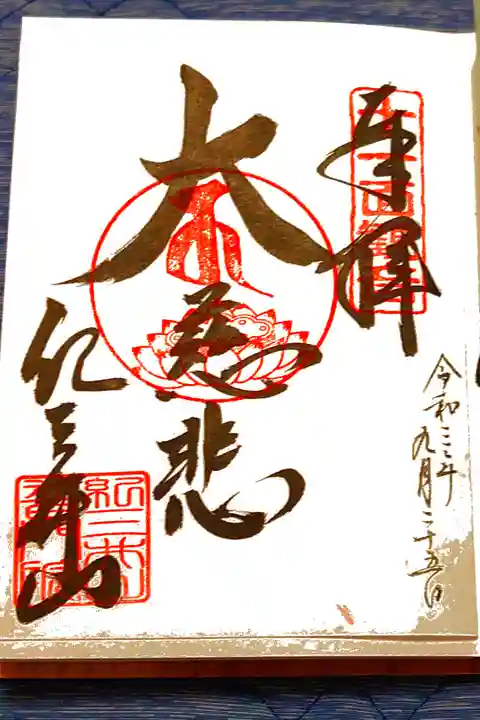 奉拝
令和三年
九月二十五日
大慈悲
紀三井山